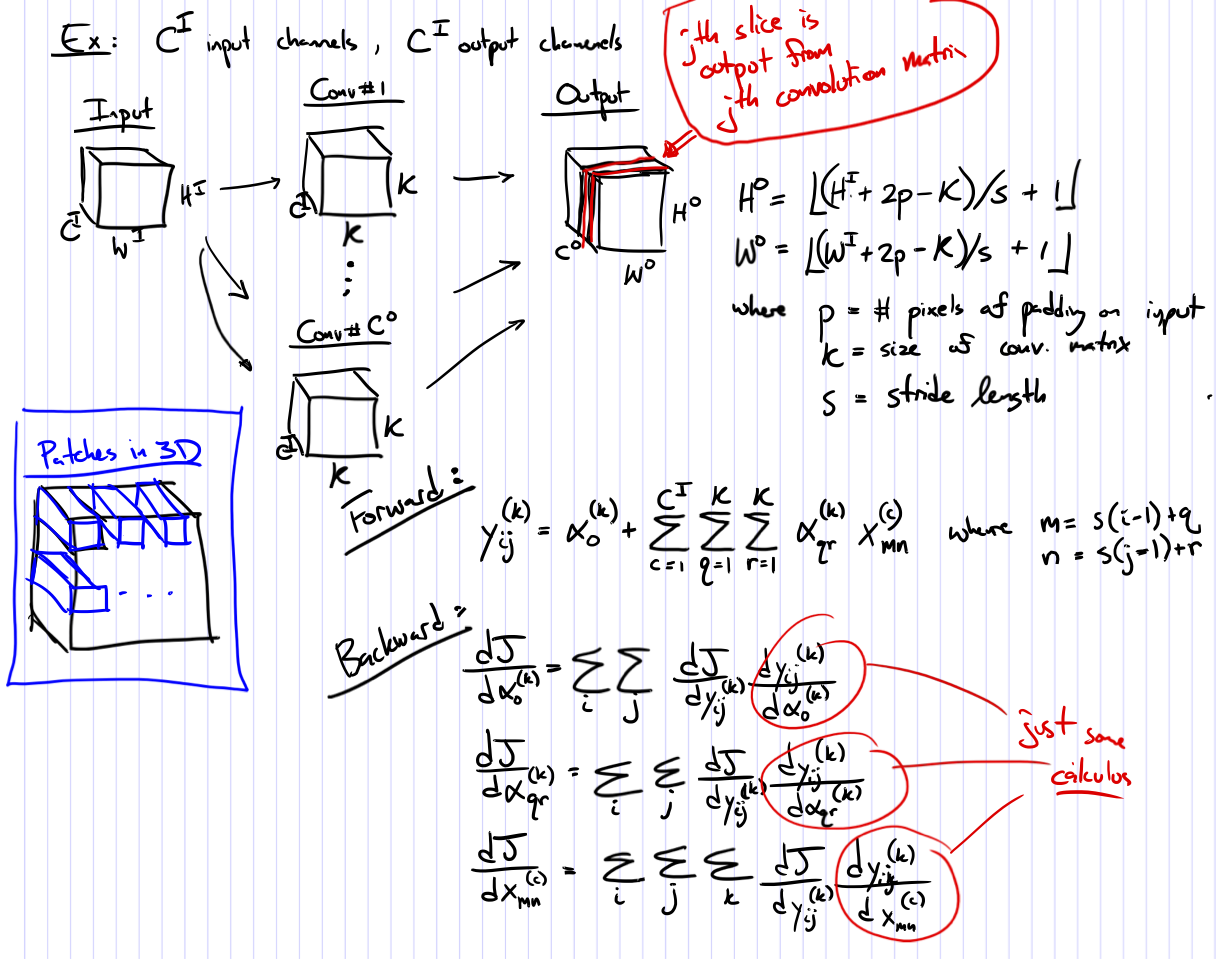 Ex: C^I input channels, C^I output channels
jth slice is
output from
jth convolution matrix
Input
H^I
C^I
W^I
Conv#1
K
C^I
K
⋮
Conv# C^O
K
C^I
K
Output
H^O
C^O
W^O
H^O = ⌊(H^I + 2p - K)/s + 1⌋
W^O = ⌊(W^I + 2p - K)/s + 1⌋
where p = # pixels of padding on input
K = size of conv. matrix
s = stride length
Patches in 3D
. . .
Forward:
y_{ij}^{(k)} = α_0^{(k)} + Σ_{c=1}^{C^I} Σ_{q=1}^{K} Σ_{r=1}^{K} α_{qr}^{(k)} x_{mn}^{(c)} where m = s(i-1)+q
n = s(j-1)+r
Backward:
dJ/dα_0^{(k)} = Σ_i Σ_j dJ/dy_{ij}^{(k)} dy_{ij}^{(k)}/dα_0^{(k)}
dJ/dα_{qr}^{(k)} = Σ_i Σ_j dJ/dy_{ij}^{(k)} dy_{ij}^{(k)}/dα_{qr}^{(k)}
dJ/dx_{mn}^{(c)} = Σ_i Σ_j Σ_k dJ/dy_{ij}^{(k)} dy_{ij}^{(k)}/dx_{mn}^{(c)}
just some
calculus